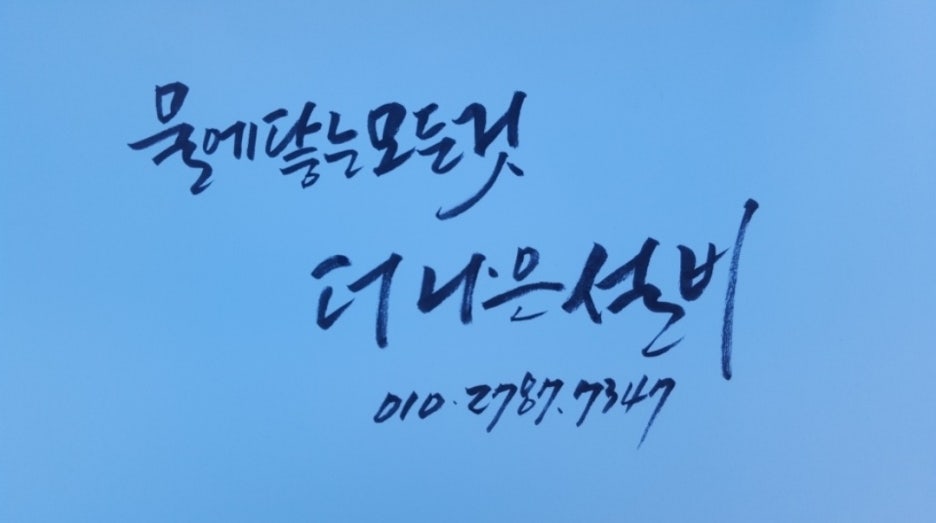 물에 닿는 모든 것
더 나은 설비
010.2787.7347